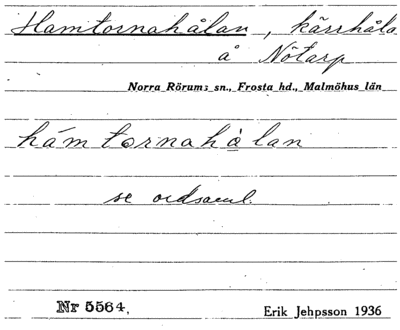 Hamtornahålan, kärrhåla
å Nötarp
Norra Rörums sn., Frosta hd., Malmöhus län
hámtornahålan
se ordsaml.
Nr 5564.
Erik Jehpsson 1936